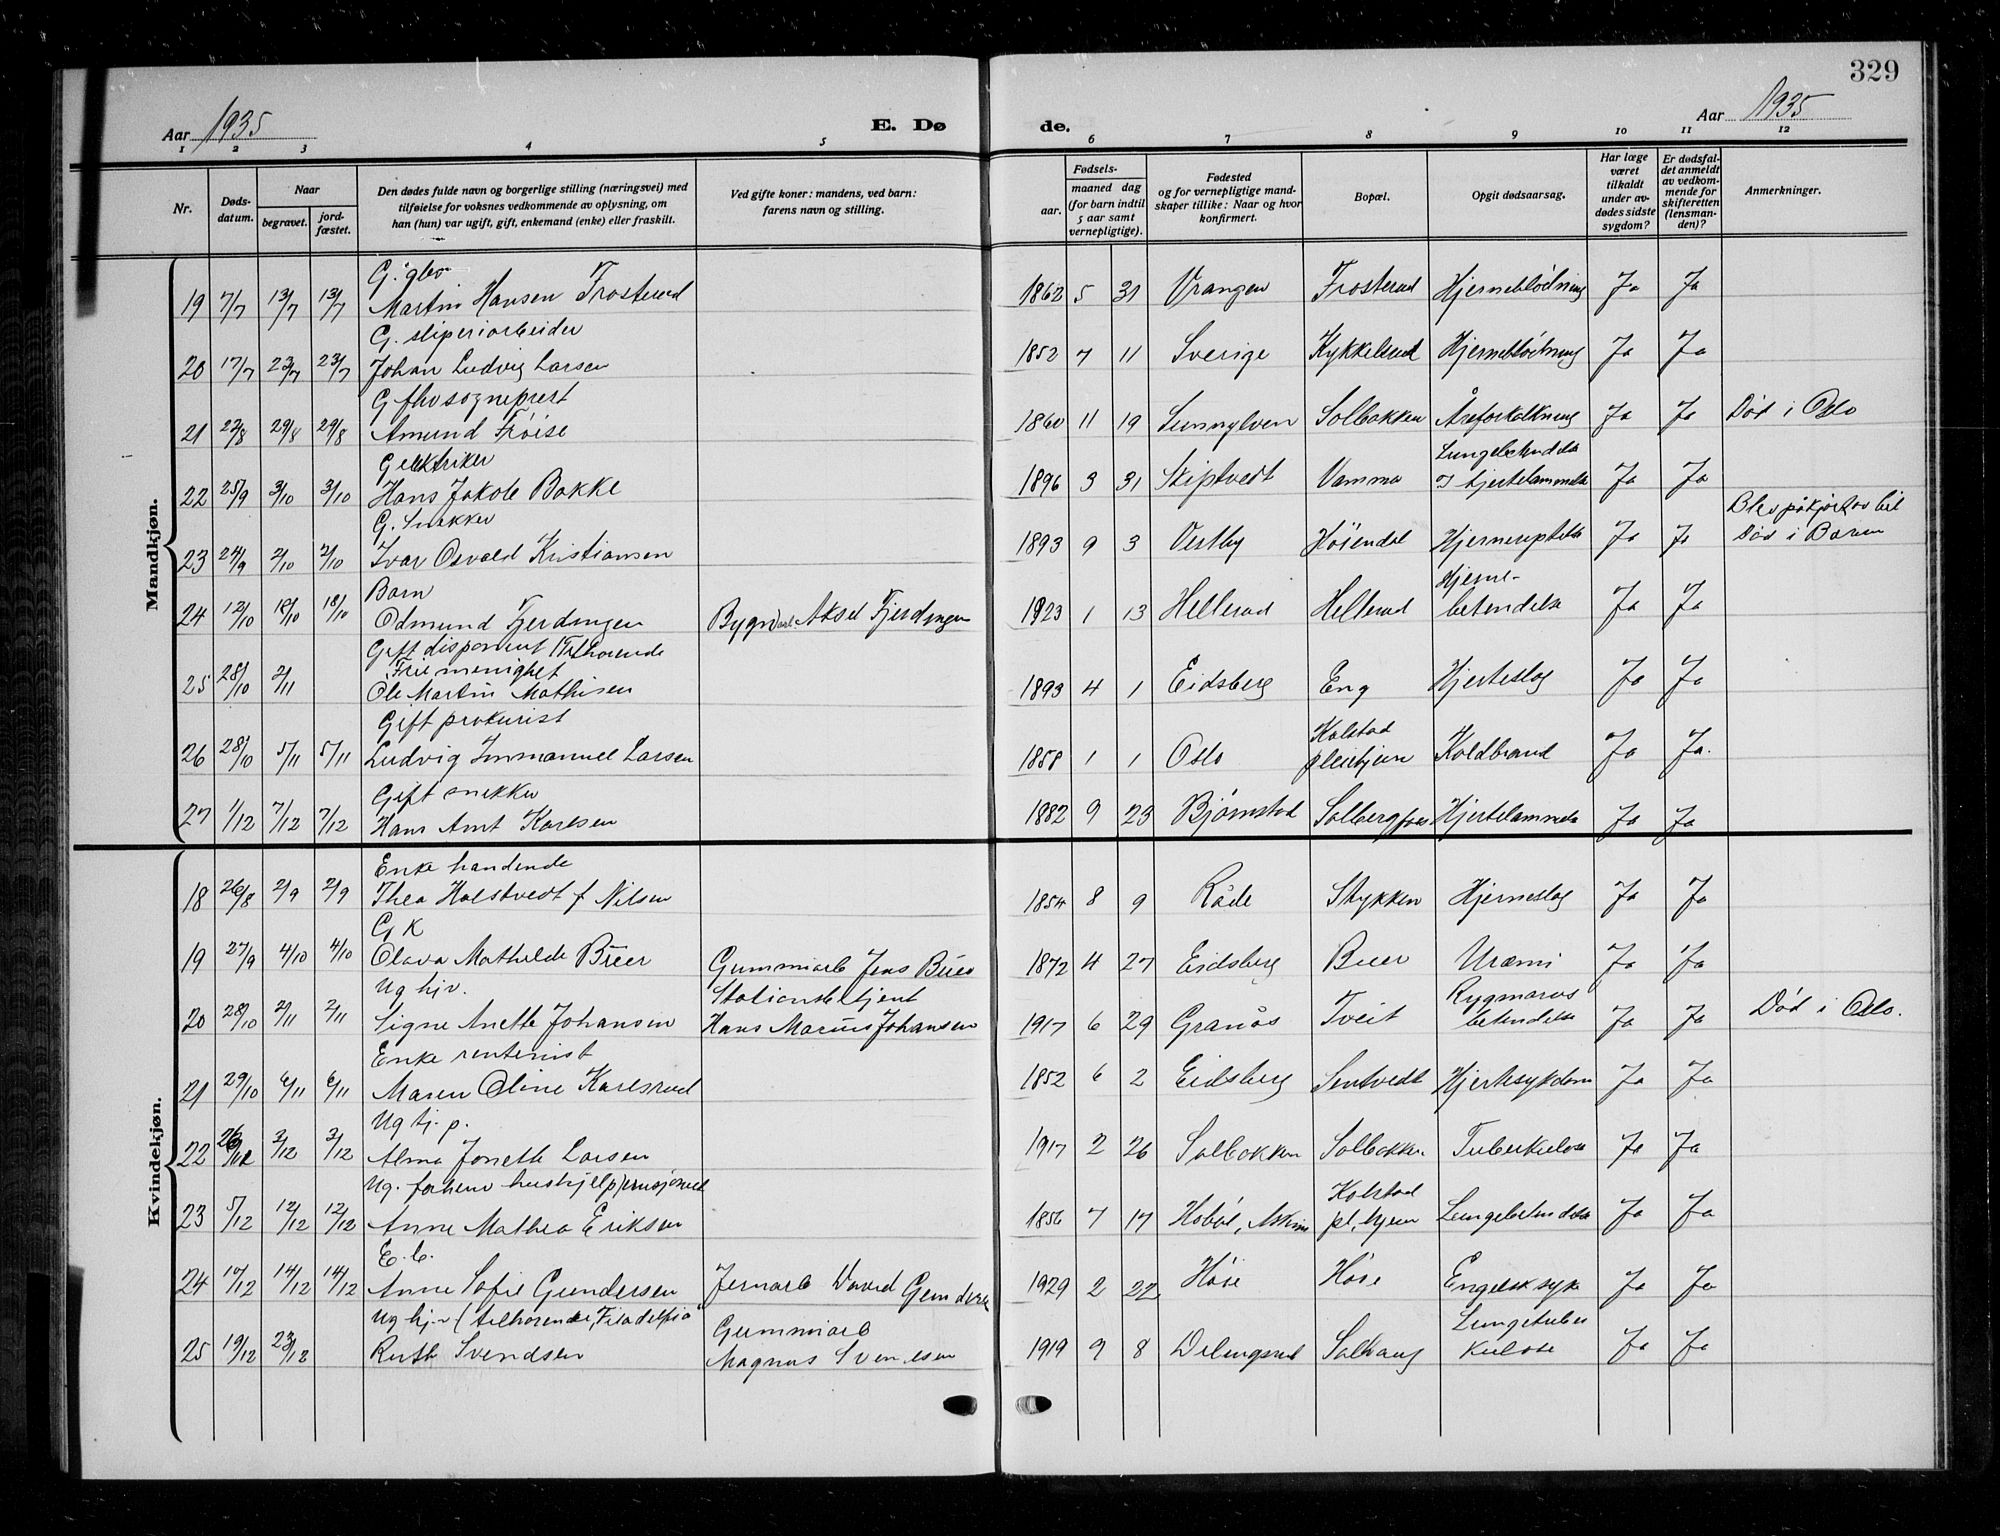 329
Aar 1935
E. Døde.
Aar 1935
1 2 3 4 5 6 7 8 9 10 11 12
Nr.
Døds-
datum.
Naar
begravet.
jord-
fæstet.
Den dødes fulde navn og borgerlige stilling (næringsvei) med
tilføielse for voksnes vedkommende av oplysning, om
han (hun) var ugift, gift, enkemand (enke) eller fraskilt.
Ved gifte koner: mandens, ved barn:
farens navn og stilling.
Fødsels-
aar.
maaned dag
(for barn indtil
5 aar samt
vernepligtige).
Fødested
og for vernepligtige mand-
skaper tillike: Naar og hvor
konfirmert.
Bopæl.
Opgit dødsaarsag.
Har læge
været
tilkaldt
under av-
dødes sidste
sygdom?
Er dødsfal-
det anmeldt
av vedkom-
mende for
skifteretten
(lensman-
den)?
Anmerkninger.
Mandkjøn.
G. gbr
19 7/7 13/7 13/7 Martin Hansen Frosterud 1862 5 31 Vrangen Frosterud Hjerneblødning Ja Ja
G. sliperiarbeider
20 17/7 23/7 23/7 Johan Ludvig Larsen 1852 7 11 Sverige Kykkelsrud Hjerneblødning Ja Ja
G fhv sogneprest
21 22/8 29/8 29/8 Amund Frøise 1860 11 19 Sunnylven Solbakken Åreforkalkning Ja Ja Død i Oslo
G elektriker Lungebetendelse
22 25/9 3/10 3/10 Hans Jakob Bakke 1896 3 31 Skiptvedt Vamma og hjertelammelse Ja Ja
G. Snekker Blev påkjørt av bil
23 24/9 2/10 2/10 Ivar Osvald Kristiansen 1893 9 3 Vestby Høiendal Hjerneruptelse Ja Ja Død i Bærum
Barn Hjerne-
24 12/10 18/10 18/10 Odmund Fjerdingen Bygn.arb Aksel Fjerdingen 1923 1 13 Hellerud Hellerud betendelse Ja Ja
Gift disponent (Tilhørende
Frie menighet
25 28/10 2/11 Ole Martin Mathisen 1893 4 1 Eidsberg Eng Hjerteslag Ja Ja
Gift prokurist Kolstad
26 28/10 5/11 5/11 Ludvig Immanuel Larsen 1858 1 1 Oslo pleiehjem Koldbrand Ja Ja.
Gift snekker
27 1/12 7/12 7/12 Hans Arnt Karlsen 1882 9 23 Bjørnstad Solbergfoss Hjertelammelse Ja Ja
Kvindekjøn.
Enke handlende
18 26/8 2/9 2/9 Thea Holstvedt f Nilsen 1854 8 9 Råde Stykken Hjerneslag Ja Ja
G K
19 27/9 4/10 4/10 Olava Mathilde Buer Gummiarb Jens Buer 1872 4 27 Eidsberg Buer Uræmi Ja Ja
Ug hjv. Stationsbetjent Rygmarvs
20 28/10 2/11 2/11 Signe Anette Johansen Hans Marius Johansen 1917 6 29 Granås Tveit betendelse Ja Ja Død i Oslo.
Enke rentenist
21 29/10 6/11 6/11 Maren Oline Karlsrud 1852 6 2 Eidsberg Sentvedt Hjertesykdom Ja Ja
Ug tj. p.
22 3/12 3/12 Alma Jonette Larsen 1917 2 26 Solbakken Solbakken Tuberkulose Ja Ja
Ug. forhenv hushjelp, pensjonert Kolstad
23 5/12 12/12 12/12 Anne Mathea Eriksen 1856 7 17 Hobøl, Askim pl. hjem Lungebetendelse Ja Ja
E. b.
24 10/12 14/12 14/12 Anne Sofie Gundersen Jernarb David Gundersen 1929 2 22 Høie Høie Engelsk syke Ja Ja
Ug hjv (tilhørende „Filadelfia" Gummiarb Lungetuber
25 19/12 23/12 Ruth Svendsen Magnus Svendsen 1919 9 8 Dilingsrud Solhaug kulose Ja Ja